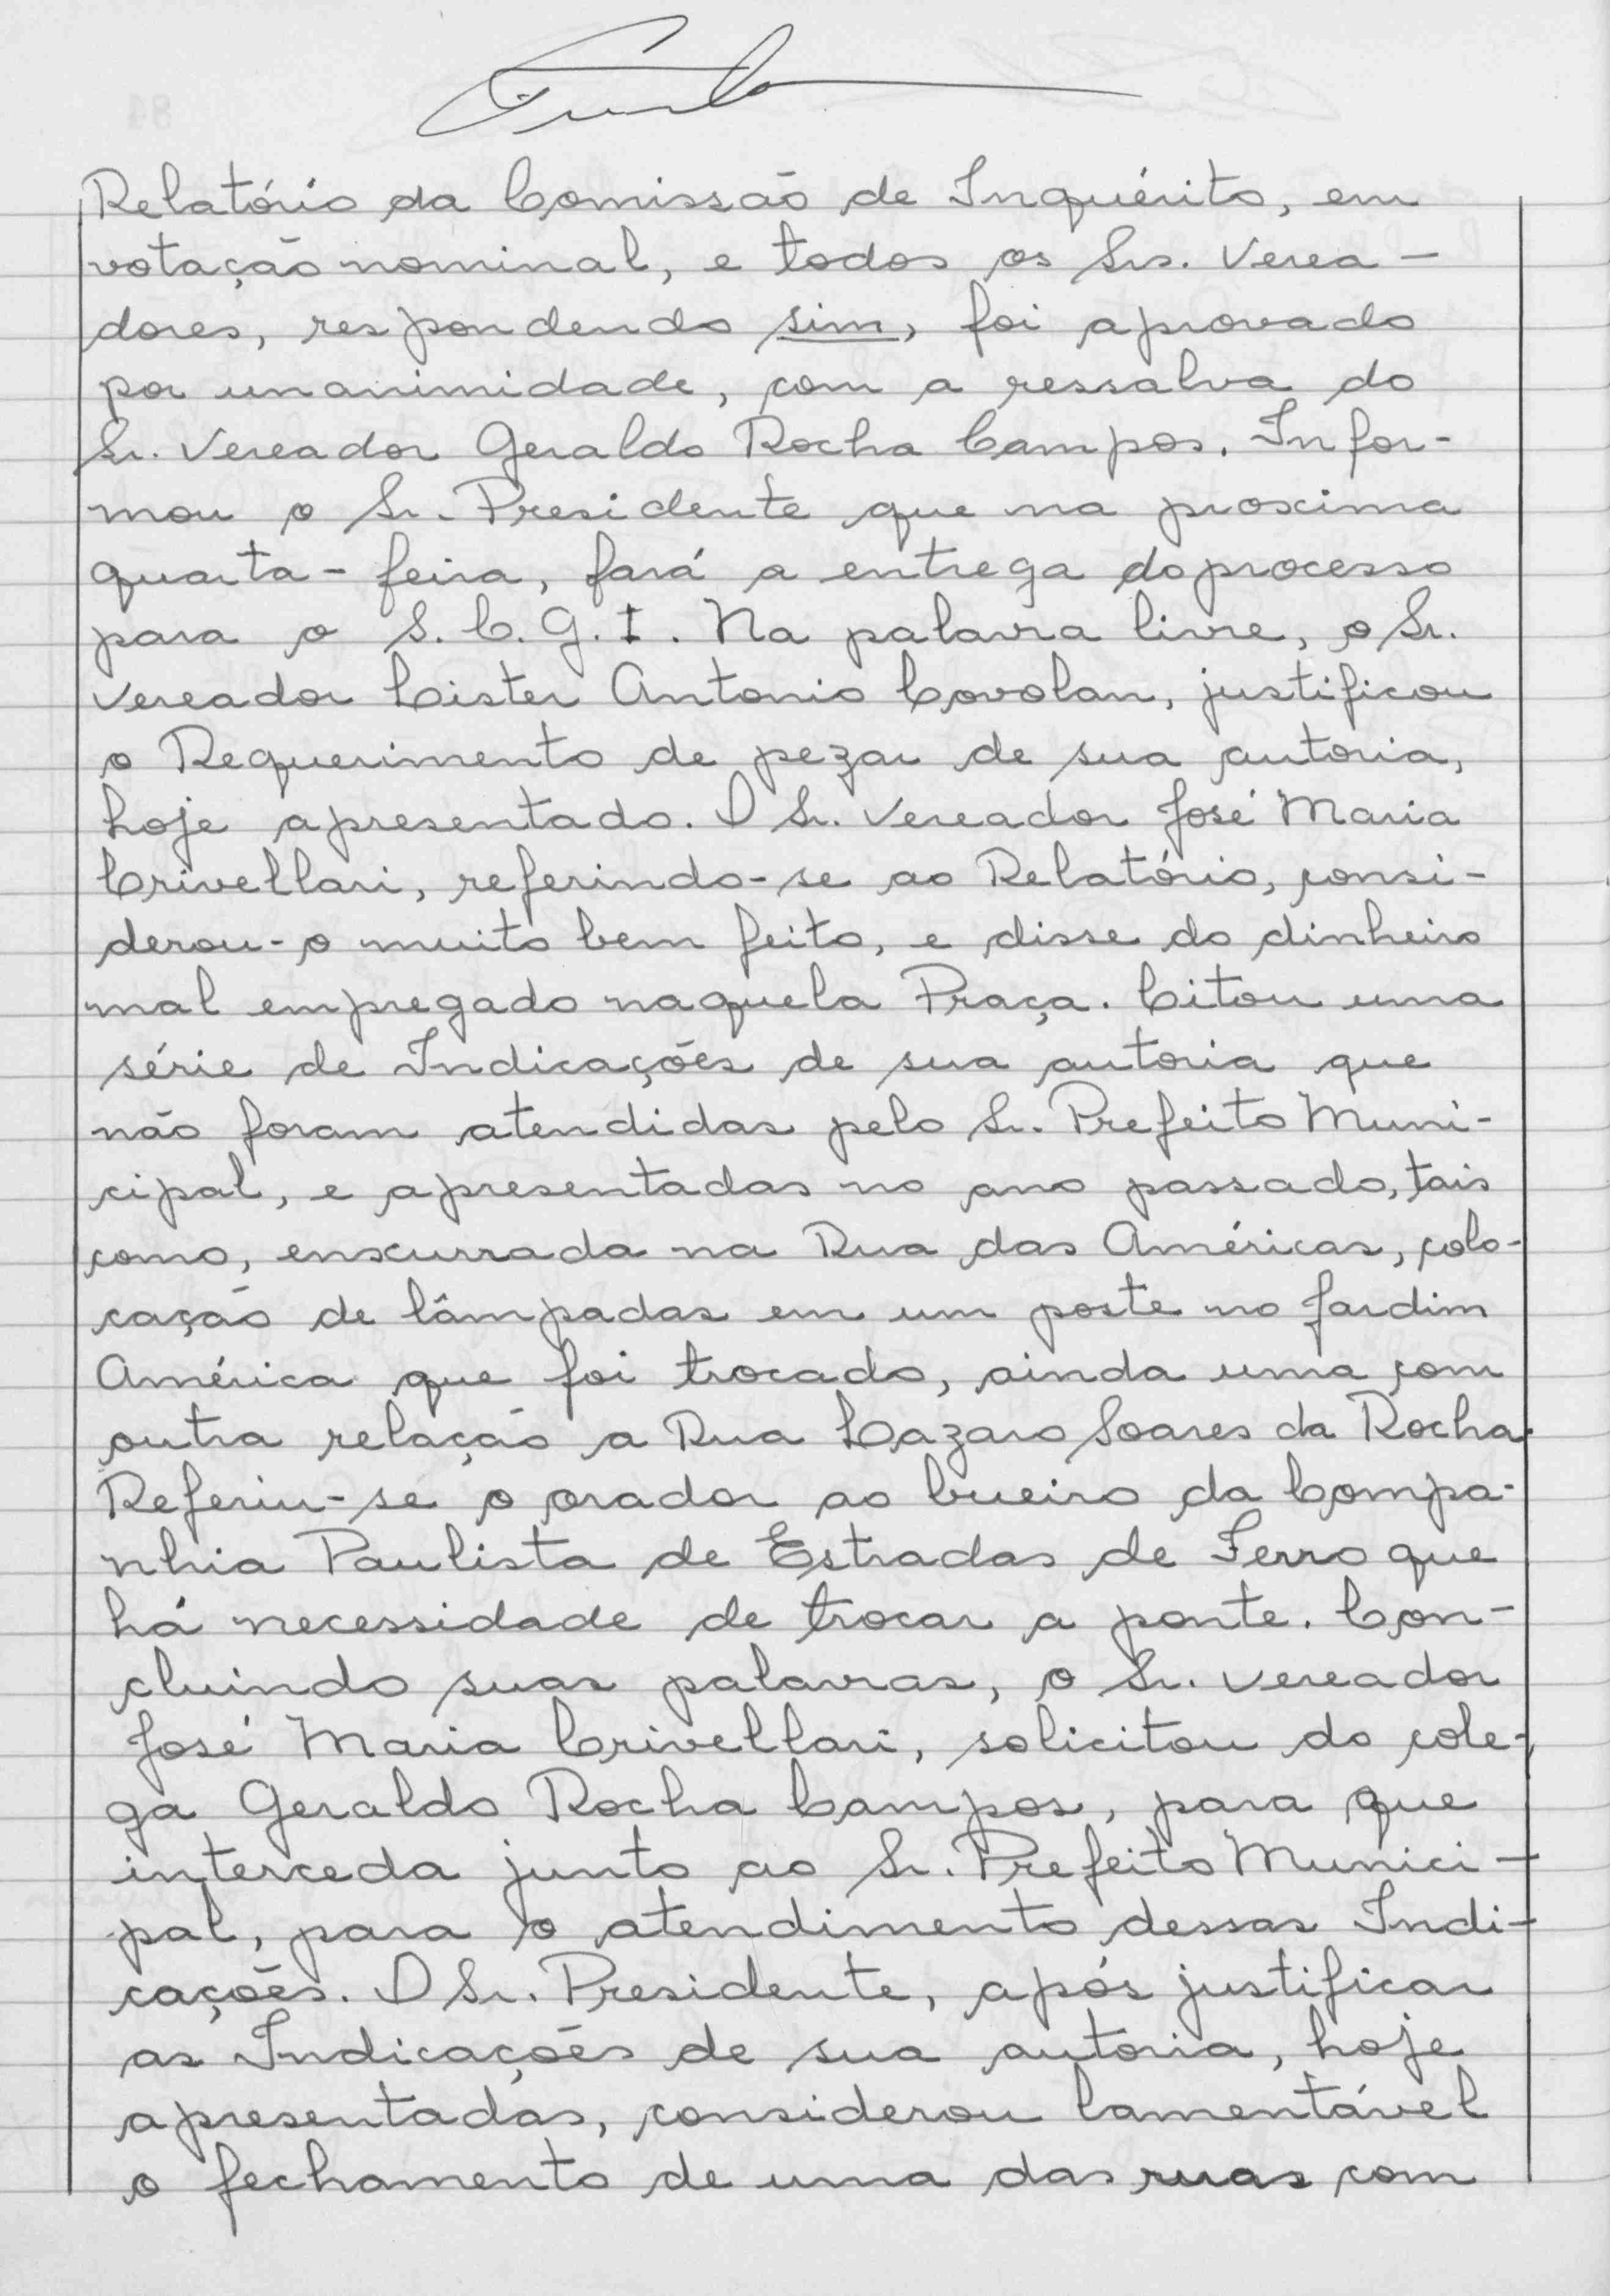 Relatório da Comissão de Inquérito, em
votação nominal, e todos os Srs. Verea-
dores, respondendo sim, foi aprovado
por unanimidade, com a ressalva do
Sr. Vereador Geraldo Rocha Campos. Infor-
mou o Sr. Presidente que na proxima
quarta-feira, fará a entrega do processo
para o S.C.G.I. Na palavra livre, o Sr.
Vereador Cister Antonio Covolan, justificou
o Requerimento de pezar de sua autoria,
hoje apresentado. O Sr. Vereador José Maria
Crivellari, referindo-se ao Relatório, consi-
derou-o muito bem feito, e disse do dinheiro
mal empregado naquela Praça. Citou uma
série de Indicações de sua autoria que
não foram atendidas pelo Sr. Prefeito Muni-
cipal, e apresentadas no ano passado, tais
como, enxurrada na Rua das Américas, colo-
cação de lâmpadas em um poste no Jardim
América que foi trocado, ainda uma com
outra relação a Rua Lazaro Soares da Rocha.
Referiu-se o orador ao bueiro da Compa-
nhia Paulista de Estradas de Ferro que
há necessidade de trocar a ponte. Con-
cluindo suas palavras, o Sr. Vereador
José Maria Crivellari, solicitou do cole-
ga Geraldo Rocha Campos, para que
interceda junto ao Sr. Prefeito Munici-
pal, para o atendimento dessas Indi-
cações. O Sr. Presidente, após justificar
as Indicações de sua autoria, hoje
apresentadas, considerou lamentável
o fechamento de uma das ruas com